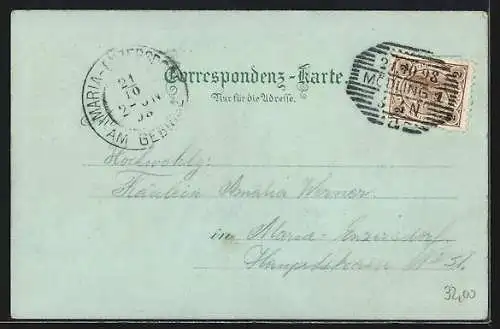 MARIA-ENZERSDORF
21
10
2-ON
98
AM GEBIRGE
21 10 98
MÖDLING 1
N
2
Correspondenz-Karte.
Nur für die Adresse.
Hochwohlg:
Fräulein Amalia Werner
in Maria-Enzersdorf
Hauptstrasse Nº
32,00